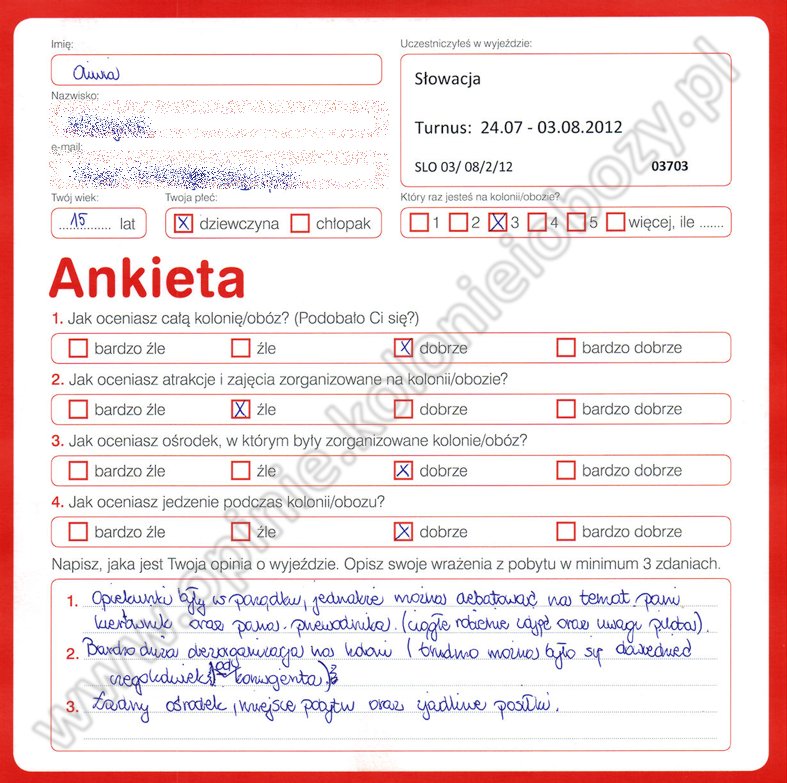 Imię:
Anna
Nazwisko:
e-mail:
Twój wiek:
15 lat
Twoja płeć:
dziewczyna chłopak
Uczestniczyłeś w wyjeździe:
Słowacja
Turnus: 24.07 - 03.08.2012
SLO 03/ 08/2/12 03703
Który raz jesteś na kolonii/obozie?
1 2 3 4 5 więcej, ile .......
Ankieta
1. Jak oceniasz całą kolonię/obóz? (Podobało Ci się?)
bardzo źle źle dobrze bardzo dobrze
2. Jak oceniasz atrakcje i zajęcia zorganizowane na kolonii/obozie?
bardzo źle źle dobrze bardzo dobrze
3. Jak oceniasz ośrodek, w którym były zorganizowane kolonie/obóz?
bardzo źle źle dobrze bardzo dobrze
4. Jak oceniasz jedzenie podczas kolonii/obozu?
bardzo źle źle dobrze bardzo dobrze
Napisz, jaka jest Twoja opinia o wyjeździe. Opisz swoje wrażenia z pobytu w minimum 3 zdaniach.
1. Opiekunki były w porządku, jednakże można debatować na temat pani
kierownik oraz pana przewodnika. (ciągłe robienie zdjęć oraz uwagi pilota).
2. Bardzo duża dezorganizacja na kolonii (trudno można było się dowiedzieć
czegokolwiek)
3. Zadany ośrodek, miejsce pobytu oraz zjadliwe posiłki.
www.opinie.kolonieiobozy.pl